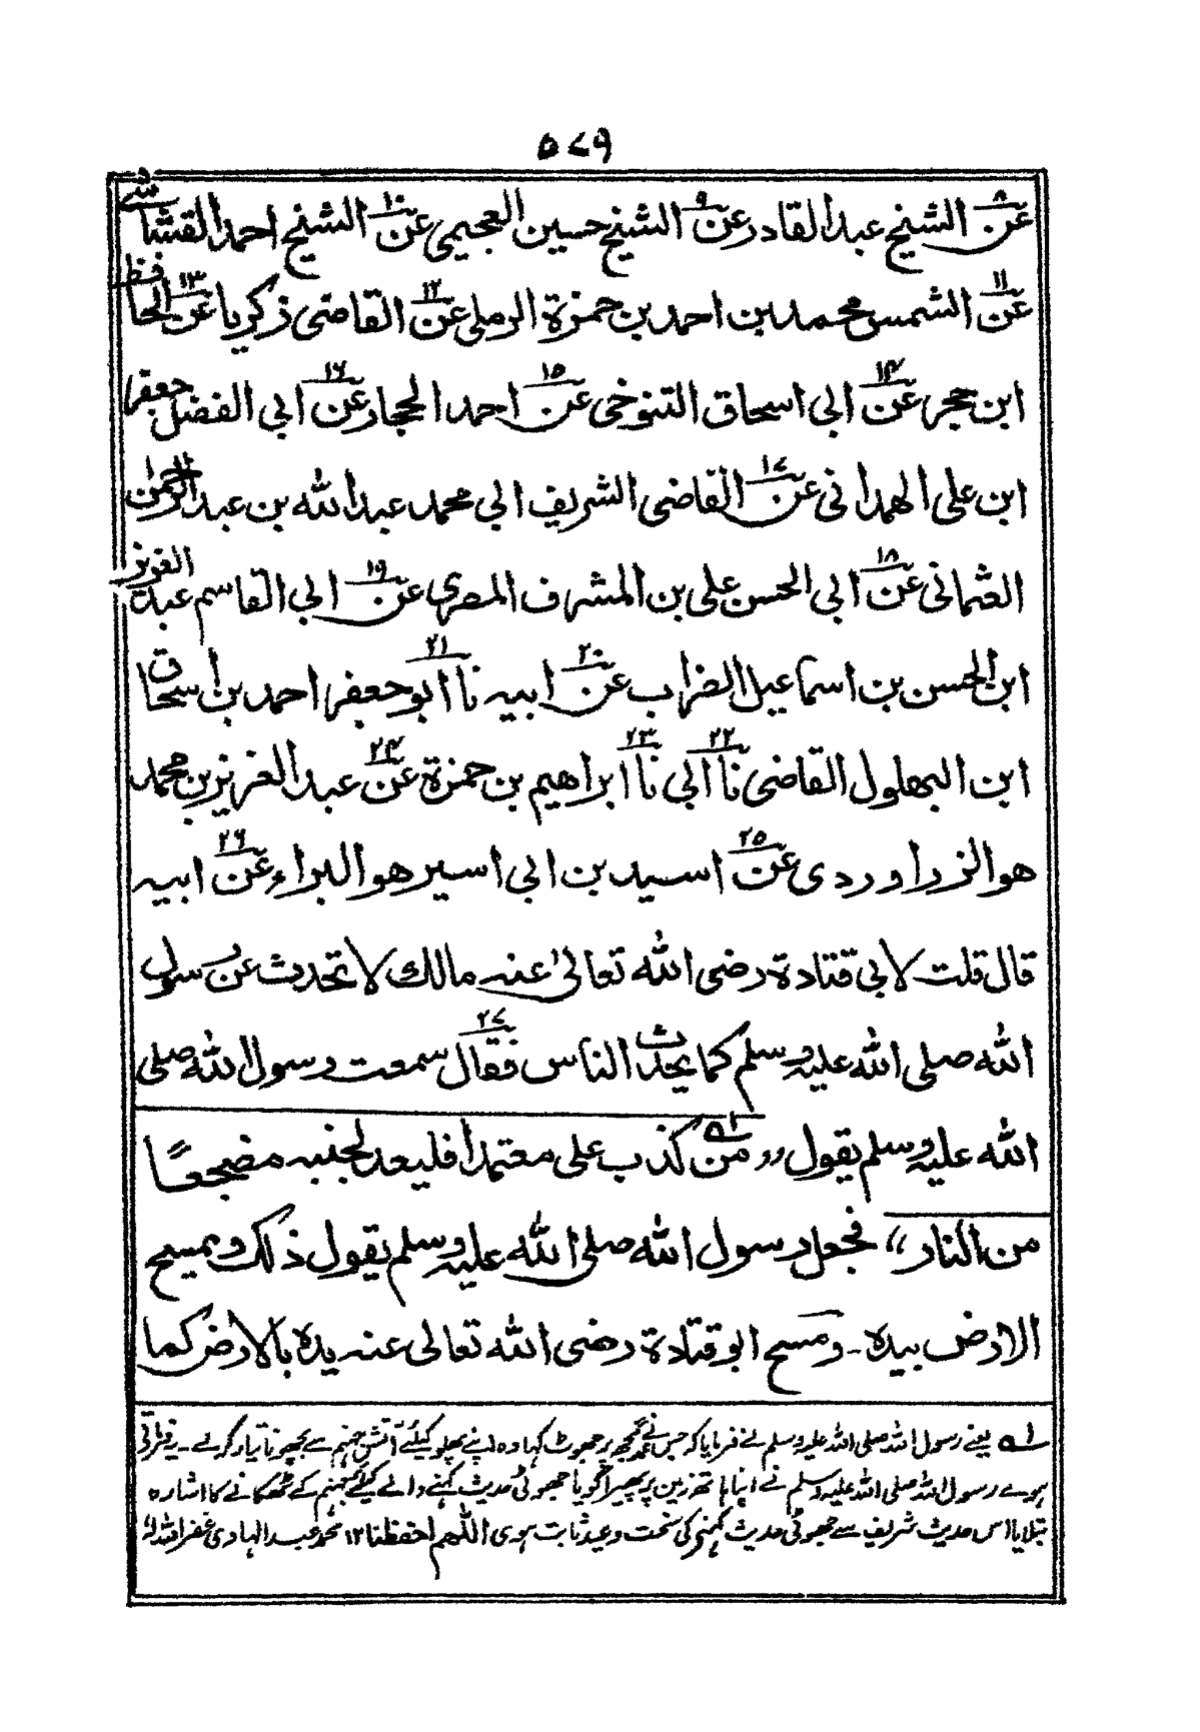 ۵۷۹
عن۸ الشیخ عبدالقادر عن۹ الشیخ حسین العجیمی عن۱۰ الشیخ احمد القشاشی
عن۱۱ الشمس محمد بن احمد بن حمزة الرملی عن۱۲ القاضی ذکریا عن۱۳ الحافظ
ابن حجر عن۱۴ ابی اسحاق التنوخی عن۱۵ احمد الحجار عن۱۶ ابی الفضل جعفر
ابن علی الهمدانی عن۱۷ القاضی الشریف ابی محمد عبدالله بن عبدالرحمٰن
العثمانی عن۱۸ ابی الحسن علی بن المشرف المصری عن۱۹ ابی القاسم عبدالعزیز
ابن الحسن بن اسماعیل الضراب عن۲۰ ابیه نا۲۱ ابوجعفر احمد بن اسحاق
ابن البهلول القاضی نا۲۲ ابی نا۲۳ ابراهیم بن حمزة عن۲۴ عبدالعزیز بن محمد
هو الزراوردی عن۲۵ اسید بن ابی اسیر هو البراء عن۲۶ ابیه
قال قلت لابی قتادة رضی الله تعالیٰ عنه مالک لا تحدث عن رسول
الله صلی الله علیه وسلم کما یحدث الناس فقال۲۷ سمعت رسول الله صلی
الله علیه وسلم یقول ”من۱ کذب علی معتمدا فلیعد لجنبه مضجعًا
من النار“ فجعل رسول الله صلی الله علیه وسلم یقول ذلک ویمسح
الارض بیده۔ ومسح ابو قتادة رضی الله تعالی عنه یده بالارض کما
۱ یعنے رسول اللہ صلی اللہ علیہ وسلم نے فرمایا کہ جس نے عمداً مجھ پر جھوٹ کہا وہ اپنے پہلو کیلئے آتش جہنم سے بچھونا تیار کرلے۔ یہ فرماتے
ہوے رسول اللہ صلی اللہ علیہ وسلم نے اپنا ہاتھ زمین پر پھیرا گویا جھوٹی حدیث کہنے والے کیلئے جہنم کے ٹھکانے کا اشارہ
بتلایا اس حدیث شریف سے جھوٹی حدیث کہنے کی سخت وعید ثابت ہوی اللهم احفظنا ۱۲ محمد عبدالہادی غفر اللہ لہ